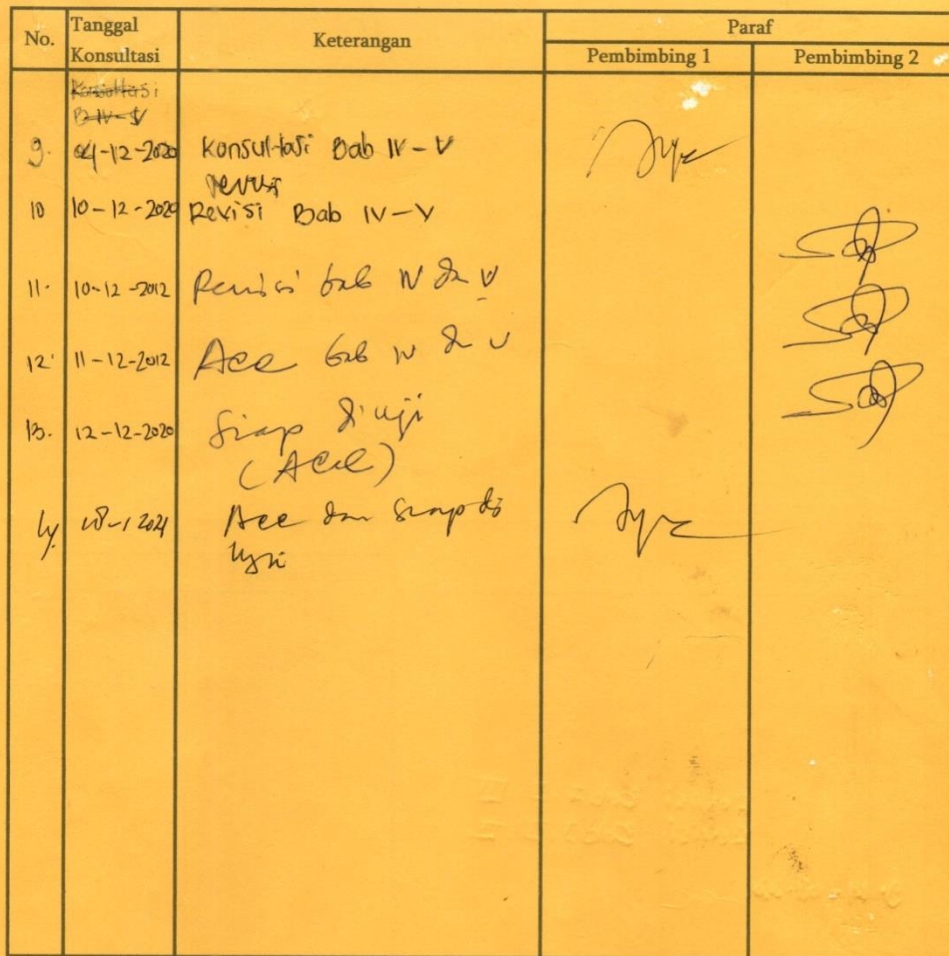 No. Tanggal Konsultasi Keterangan Paraf
Pembimbing 1 Pembimbing 2
Konsultasi
B IV-V
9. 04-12-2020 Konsultasi Bab IV-V
revisi
10 10-12-2020 Revisi Bab IV-V
11. 10-12-2012 Revisi bab IV dan V
12 11-12-2012 Acc bab IV dan V
13. 12-12-2020 Siap diuji
(Acc)
14. 18-1 2021 Acc dan siap di
uji